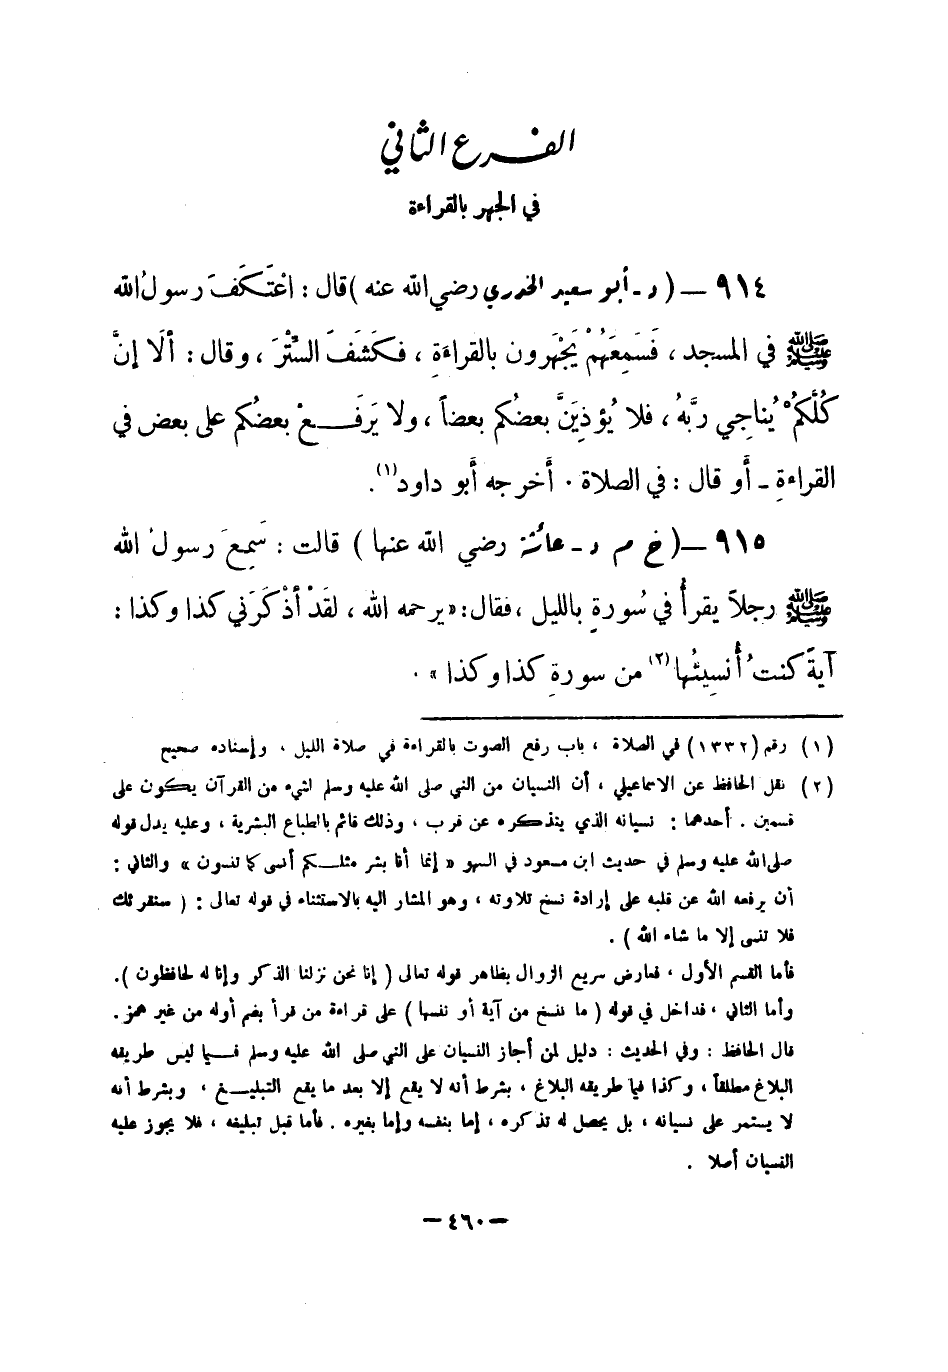 الفرع الثاني
في الجهر بالقراءة
٩١٤ – ( د - أبو سعيد الخدري رضي الله عنه ) قال : اعْتَكَفَ رسولُ الله
ﷺ في المسجد ، فَسَمِعَهُمْ يَجْهَرون بالقراءَةِ ، فكَشَفَ السِّتْرَ ، وقال : ألَا إنَّ
كُلَّكمْ يُناجِي ربَّهُ ، فلا يُؤذِيَنَّ بعضُكم بعضاً ، ولا يَرفَعْ بعضُكم على بعض في
القراءةِ - أَو قال : في الصلاة . أَخرجه أَبو داود (١).
٩١٥ – ( خ م د - عائشة رضي الله عنها ) قالت : سَمِعَ رسولُ الله
ﷺ رجلاً يقرأُ في سُورةٍ بالليل ، فقال: «يرحمه الله ، لقَدْ أذْكَرَني كذا وكذا :
آيةً كنتُ أُنسِيتُها (٢) من سورةِ كذا وكذا » .
(١) رقم (١٣٣٢) في الصلاة ، باب رفع الصوت بالقراءة في صلاة الليل ، وإسناده صحيح
(٢) نقل الحافظ عن الاسماعيلي ، أن النسيان من النبي صلى الله عليه وسلم لشيء من القرآن يكون على
قسمين . أحدهما : نسيانه الذي يتذكره عن قرب ، وذلك قائم بالطباع البشرية ، وعليه يدل قوله
صلى الله عليه وسلم في حديث ابن مسعود في السهو « إنما أنا بشر مثلكم أنسى كما تنسون » والثاني :
أن يرفعه الله عن قلبه على إرادة نسخ تلاوته ، وهو المشار اليه بالاستثناء في قوله تعالى : ( سنقرئك
فلا تنسى إلا ما شاء الله ) .
فأما القسم الأول ، فعارض سريع الزوال بظاهر قوله تعالى ( إنا نحن نزلنا الذكر وإنا له لحافظون ).
وأما الثاني ، فداخل في قوله ( ما ننسخ من آية أو ننسها ) على قراءة من قرأ بضم أوله من غير همز.
قال الحافظ : وفي الحديث : دليل لمن أجاز النسيان على النبي صلى الله عليه وسلم فيما ليس طريقه
البلاغ مطلقاً ، وكذا فيما طريقه البلاغ ، بشرط أنه لا يقع إلا بعد ما يقع التبليغ ، وبشرط أنه
لا يستمر على نسيانه ، بل يحصل له تذكره ، إما بنفسه وإما بغيره . فأما قبل تبليغه ، فلا يجوز عليه
النسيان أصلا .
– ٤٦٠ –